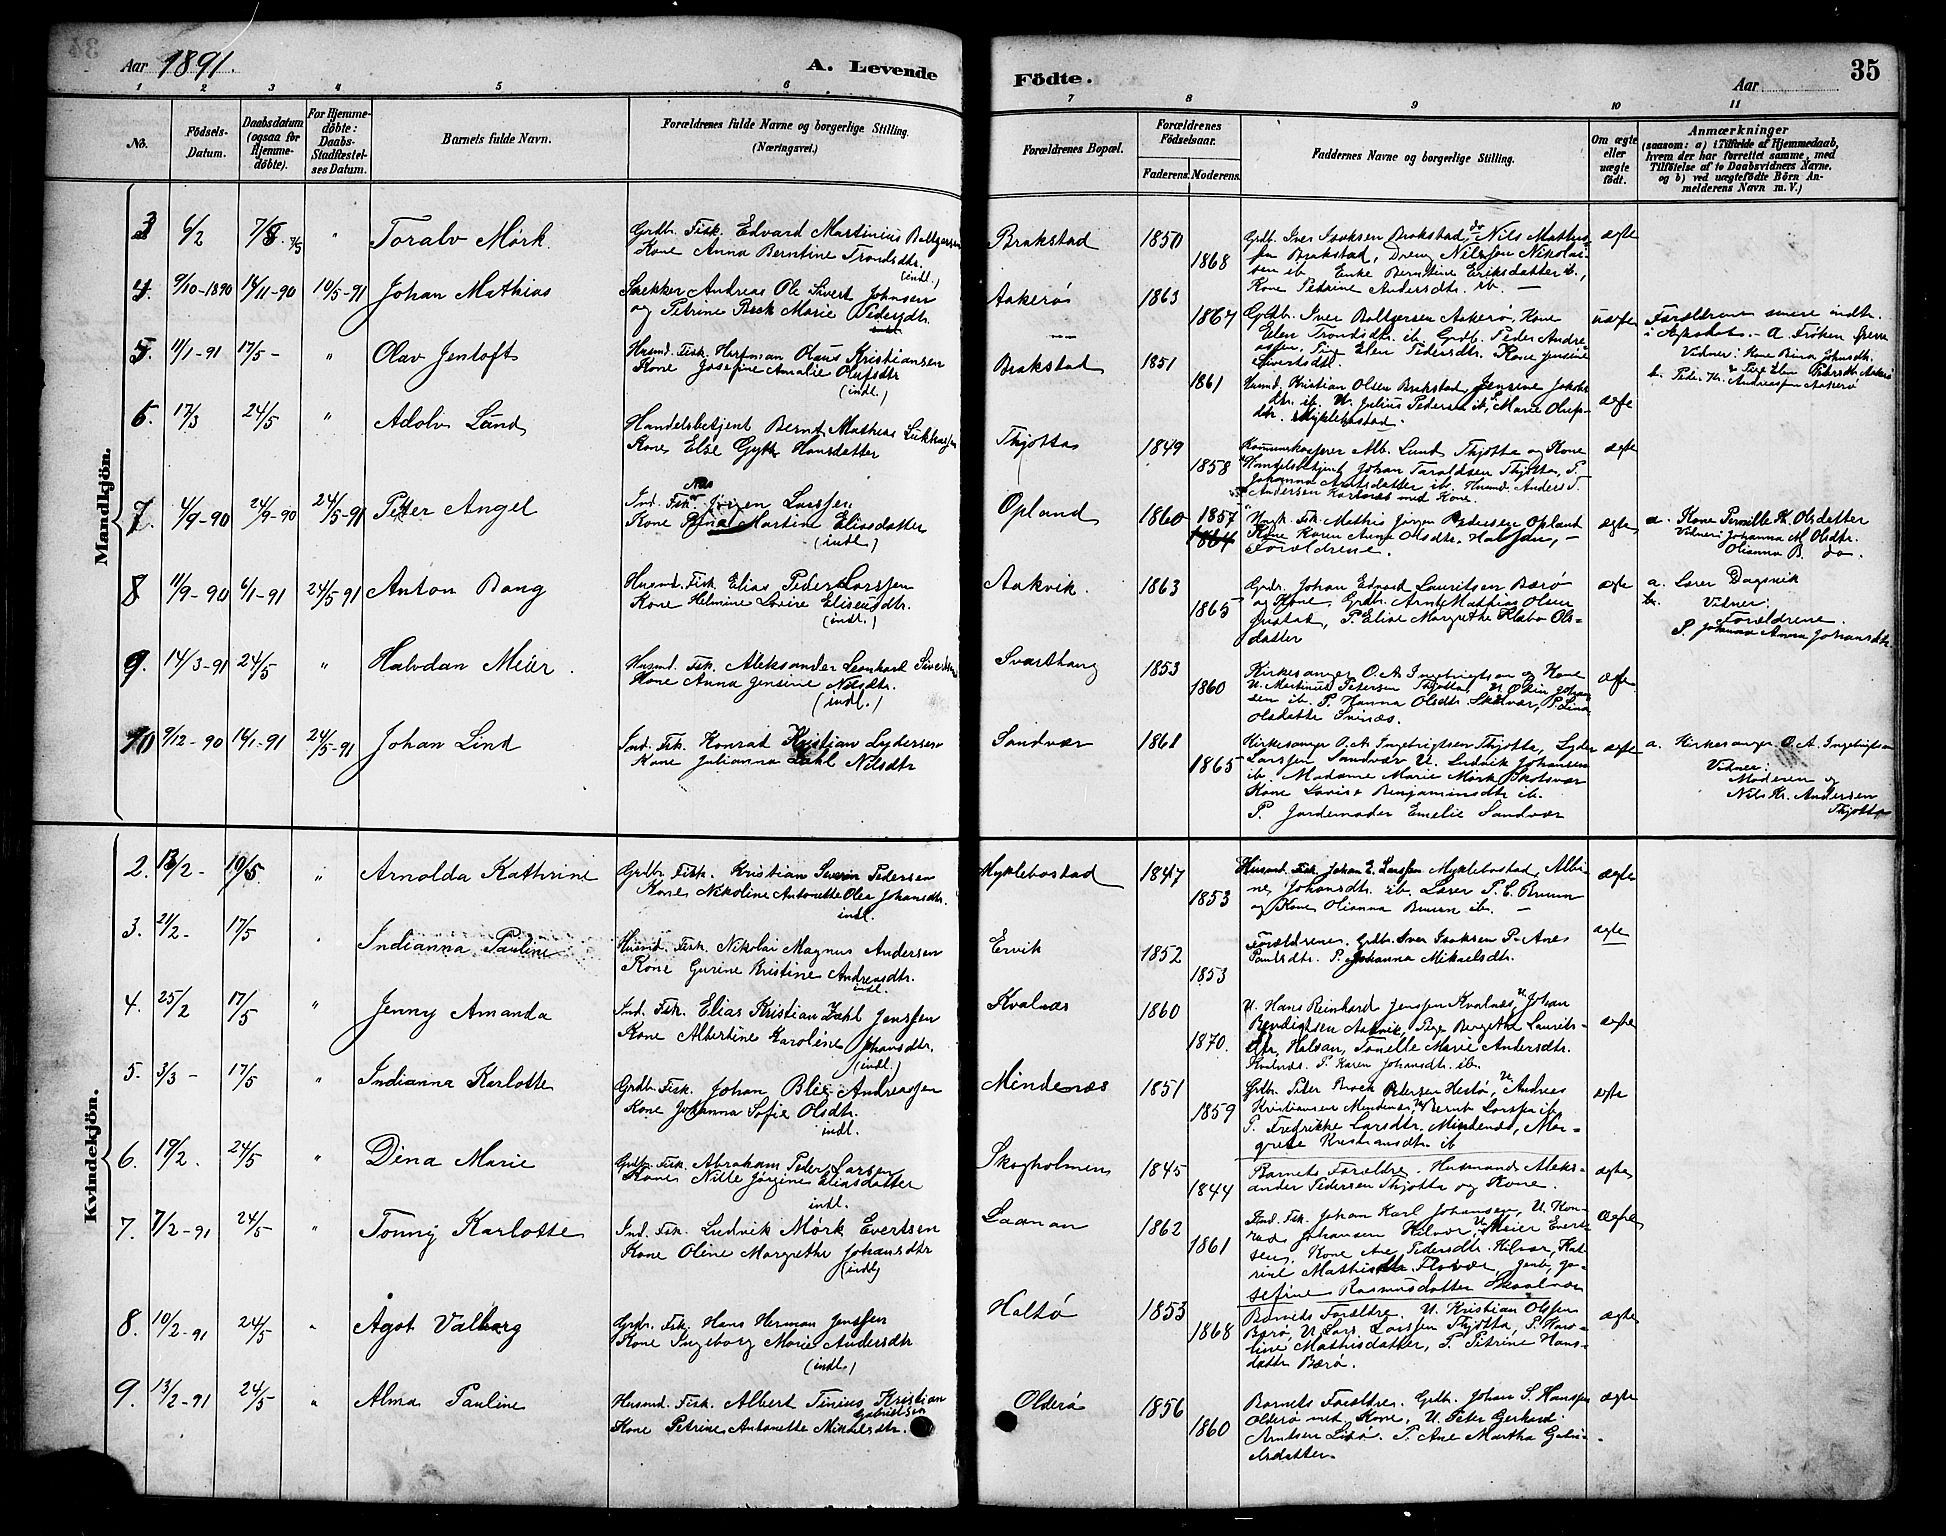 Aar 1891.
A. Levende
Födte.
Aar
35
1 2 3 4 5 6 7 8 9 10 11
No.
Födsels-Datum.
Daabsdatum (ogsaa for Hjemmedöbte).
For Hjemmedöbte: Daabs-Stadfæstelses Datum.
Barnets fulde Navn.
Forældrenes fulde Navne og borgerlige Stilling. (Næringsvei.)
Forældrenes Bopæl.
Forældrenes Födselsaar.
Faderens. Moderens.
Faddernes Navne og borgerlige Stilling.
Om ægte eller uægte födt.
Anmærkninger
(saasom: a) i Tilfælde af Hjemmedaab,
hvem der har forrettet samme, med
Tilföielse af to Daabsvidners Navne.
og b) ved uægtefödte Börn An-
melderens Navn m. V.)
Mandkjön.
3 6/2 7/5 " Toralv Mörk.
Grdb. Fisk. Edvard Martinius Baltzersen
Kone Anna Berntine Trondsdtr.
(indl.)
Brakstad 1850 1868
Grdb. Iver Isaksen Brakstad, do Nils Mathis-
sen Brakstad, Dreng Nilsen Nikolai-
sen ib. Enke Berntine Eriksdatter ib.,
Kone Petrine Andersdtr. ib. —
ægte
4. 9/10-1890 14/11-90 10/5-91 Johan Mathias
Snekker Andreas Ole Sivert Johnsen
og Petrine Beck Marie Pedersdtr.
Aakerö 1863 1867
Grdb. Iver Baltzersen Aakerö, Kone
Elen Trondsdtr. ib. Grdb. Peder Andre-
assen, Pige Elen Pedersdtr. Kone Jensine
Sivertsdtr.
uægte
Forældrene senere indtr.
Vidner: Kone Johnsdtr.
b. Peder Kr. Andreassen Aakerö
5. 11/1-91 17/5- " Olav Jentoft
Husmd. Fisk. Olaus Kristiansen
Kone Josefine Amalie Olufsdtr
(indl.)
Brakstad 1851 1861
Husmd. Kristian Olsen Brakstad, Jensine Jakobs-
dtr. ib. U. Julius Pedersen ib., Marie Olufs-
dtr. Myklebostad.
ægte
6. 17/3 24/5 " Adolv Lund
Handelsbetjent Bernt Mathias
Kone Else Hansdatter
Thjotta 1849 1858
Alb. Lund Thjotta og Kone
Handelsbetjent Johan Taraldsen Thjotta, P.
Johanna Arntsdatter ib. Husmd. Anders T.
Andersen med Kone.
ægte
7. 4/9-90 24/9-90 24/5-91 Peter Angel
Ind. Fisk. Jörgen Larssen
Kone Martine Eliasdatter
(indl.)
Opland 1860 1857 1864
Fisk. Mathis Jörgen Pedersen Opland
Kone Karen Anna Olsdtr. Halsan, —
Forældrene.
ægte
a. Kone Pernille K. Olsdatter
Vidner: Johanna M. Olsdtr.
Olianna B. do.
8 11/9-90 6/1-91 24/5-91 Anton Bang
Husmd. Fisk. Elias Peder Larssen
Kone Helmine Lovise Elisæusdtr.
(indl.)
Aakvik. 1863 1865
Grdb. Johan Edvard Lauritsen Bærö
og Kone, Grdb. Arnt Mathias Olsen
P. Elise Margrethe Ols-
datter
ægte
a. Lærer Dagsvik
Vidner:
Forældrene.
P. Johanna Anna Johansdtr.
9. 14/3-91 24/5 " Halvdan Meier.
Husmd. Fisk. Aleksander Leonhard Sivertsen
Kone Anna Jensine Nilsdtr.
(indl.)
Svarthaug 1853 1860
Kirkesanger O. A. Ingebrigtsen og Kone
U. Martinus Petersen Thjotta, U. Odin Johan-
sen ib. P. Hanna Olsdtr. P. Lina
Olsdatter
ægte
10 9/12-90 16/1-91 24/5-91 Johan Lind
Ind. Fisk. Konrad Kristian Lydersen
Kone Julianna Dahl Nilsdtr
Sandvær 1861 1865
Kirkesanger O. A. Ingebrigtsen Thjotta, Lyder
Larssen Sandvær U. Ludvik Johansen
ib. Madame Marie Mörk Skotsvær
Kone Lovise Benjaminsdtr ib.
P. Jordemoder Emelie Sandvær
ægte
a. Kirkesanger O. A. Ingebrigtsen
Vidner:
Moderen og
Nils Kr. Andersen
Thjotta
Kvindekjön.
2. 13/2- 10/5. " Arnolda Kathrine
Grdbr. Fisk. Kristian Severin Pedersen
Kone Nikoline Antonette Olea Johansdtr.
indl.
Myklebostad 1847 1853
Husmd. Fisk. Johan E. Larssen Myklebostad, Albi-
ne Johansdtr. ib. Lærer P. C. Bruun
og Kone Olianna Bruun ib. —
ægte
3. 21/2- 17/5 " Indianna Pauline
Husmd. Fisk. Nikolai Magnus Andersen
Kone Gurine Kristine Andreasdtr.
indl.
Ervik 1852 1853
Forældrene. Grdb. Iver Isaksen P. Ane
Paulsdtr. P. Johanna Mikaelsdtr.
ægte
4. 25/2 17/5 " Jenny Amanda
Ind. Fisk. Elias Kristian Zahl Jenssen
Kone Albertine Karoline Johansdtr.
(indl.)
Kvalnæs 1860 1870.
U. Hans Reinhard Jenssen Kvalnæs, U. Johan
Bendigtsen Aakvik, Pige Bergitha Laurits-
dtr, Halsan, Tonelle Marie Andersdtr.
Kvalnæs. P. Karen Johansdtr. ib.
ægte
5. 3/3 - 17/5 " Indianna Karlotte
Grdb. Fisk. Johan Andreassen
Kone Johanna Sofie Olsdtr.
indl.
Mindenæs 1851 1859
Grdb. Peder Brock Petersen Hestö, U. Andreas
Kristiansen Mindenæs, U. Bernt Larssen ib.
P. Fredrikke Larsdtr. Mindenæs, Mar-
grete Kristiansdtr. ib
ægte
6. 19/2. 24/5 " Dina Marie
Grdbr. Fisk. Abraham Peder Larsen
Kone Nille Jörgine Eliasdatter
indl.
Skogholmen 1845 1844
Barnets Forældre. Husmand Aleks-
ander Pedersen Thjotta og Kone.
ægte
7. 7/2-91 24/5 " Tonny Karlotte
Ind. Fisk. Ludvik Mörk Evertsen
Kone Oline Margrethe Johansdtr
(indl)
Laanan 1862 1861
Ind. Fisk. Johan Karl Johansen, U. Kon-
rad Johansen Hilvær, U. Meier Evert-
sen, Kone Ane Pedersdtr. Hilvær, Kat-
rine Mathisdtr. Flovær, Jo-
sefine Rasmusdatter Skaalvær
ægte
8. 10/2-91 24/5 " Agot Valborg
Grdb. Fisk. Hans Herman Jenssen
Kone Ingeborg Marie Andersdtr
(indl.)
Haltö 1853 1868
Barnets Forældre. U. Kristian Olssen
Bærö, U. Lars Larssen Thjotta, P. Karo-
line Mathisdatter, P. Petrine Hans-
datter Bærö.
ægte
9. 13/2-91 24/5 " Alma Pauline
Husmd. Fisk. Albert Tinius Kristian
Gabrielsen
Kone Petrine Antonette Mikkelsdtr.
Olderö 1856 1860
Barnets Forældre. Grdb. Johan S. Hanssen
Olderö med Kone, U. Peter Gerhard
Arntsen P. Ane Martha Gabri-
elsdatter.
ægte